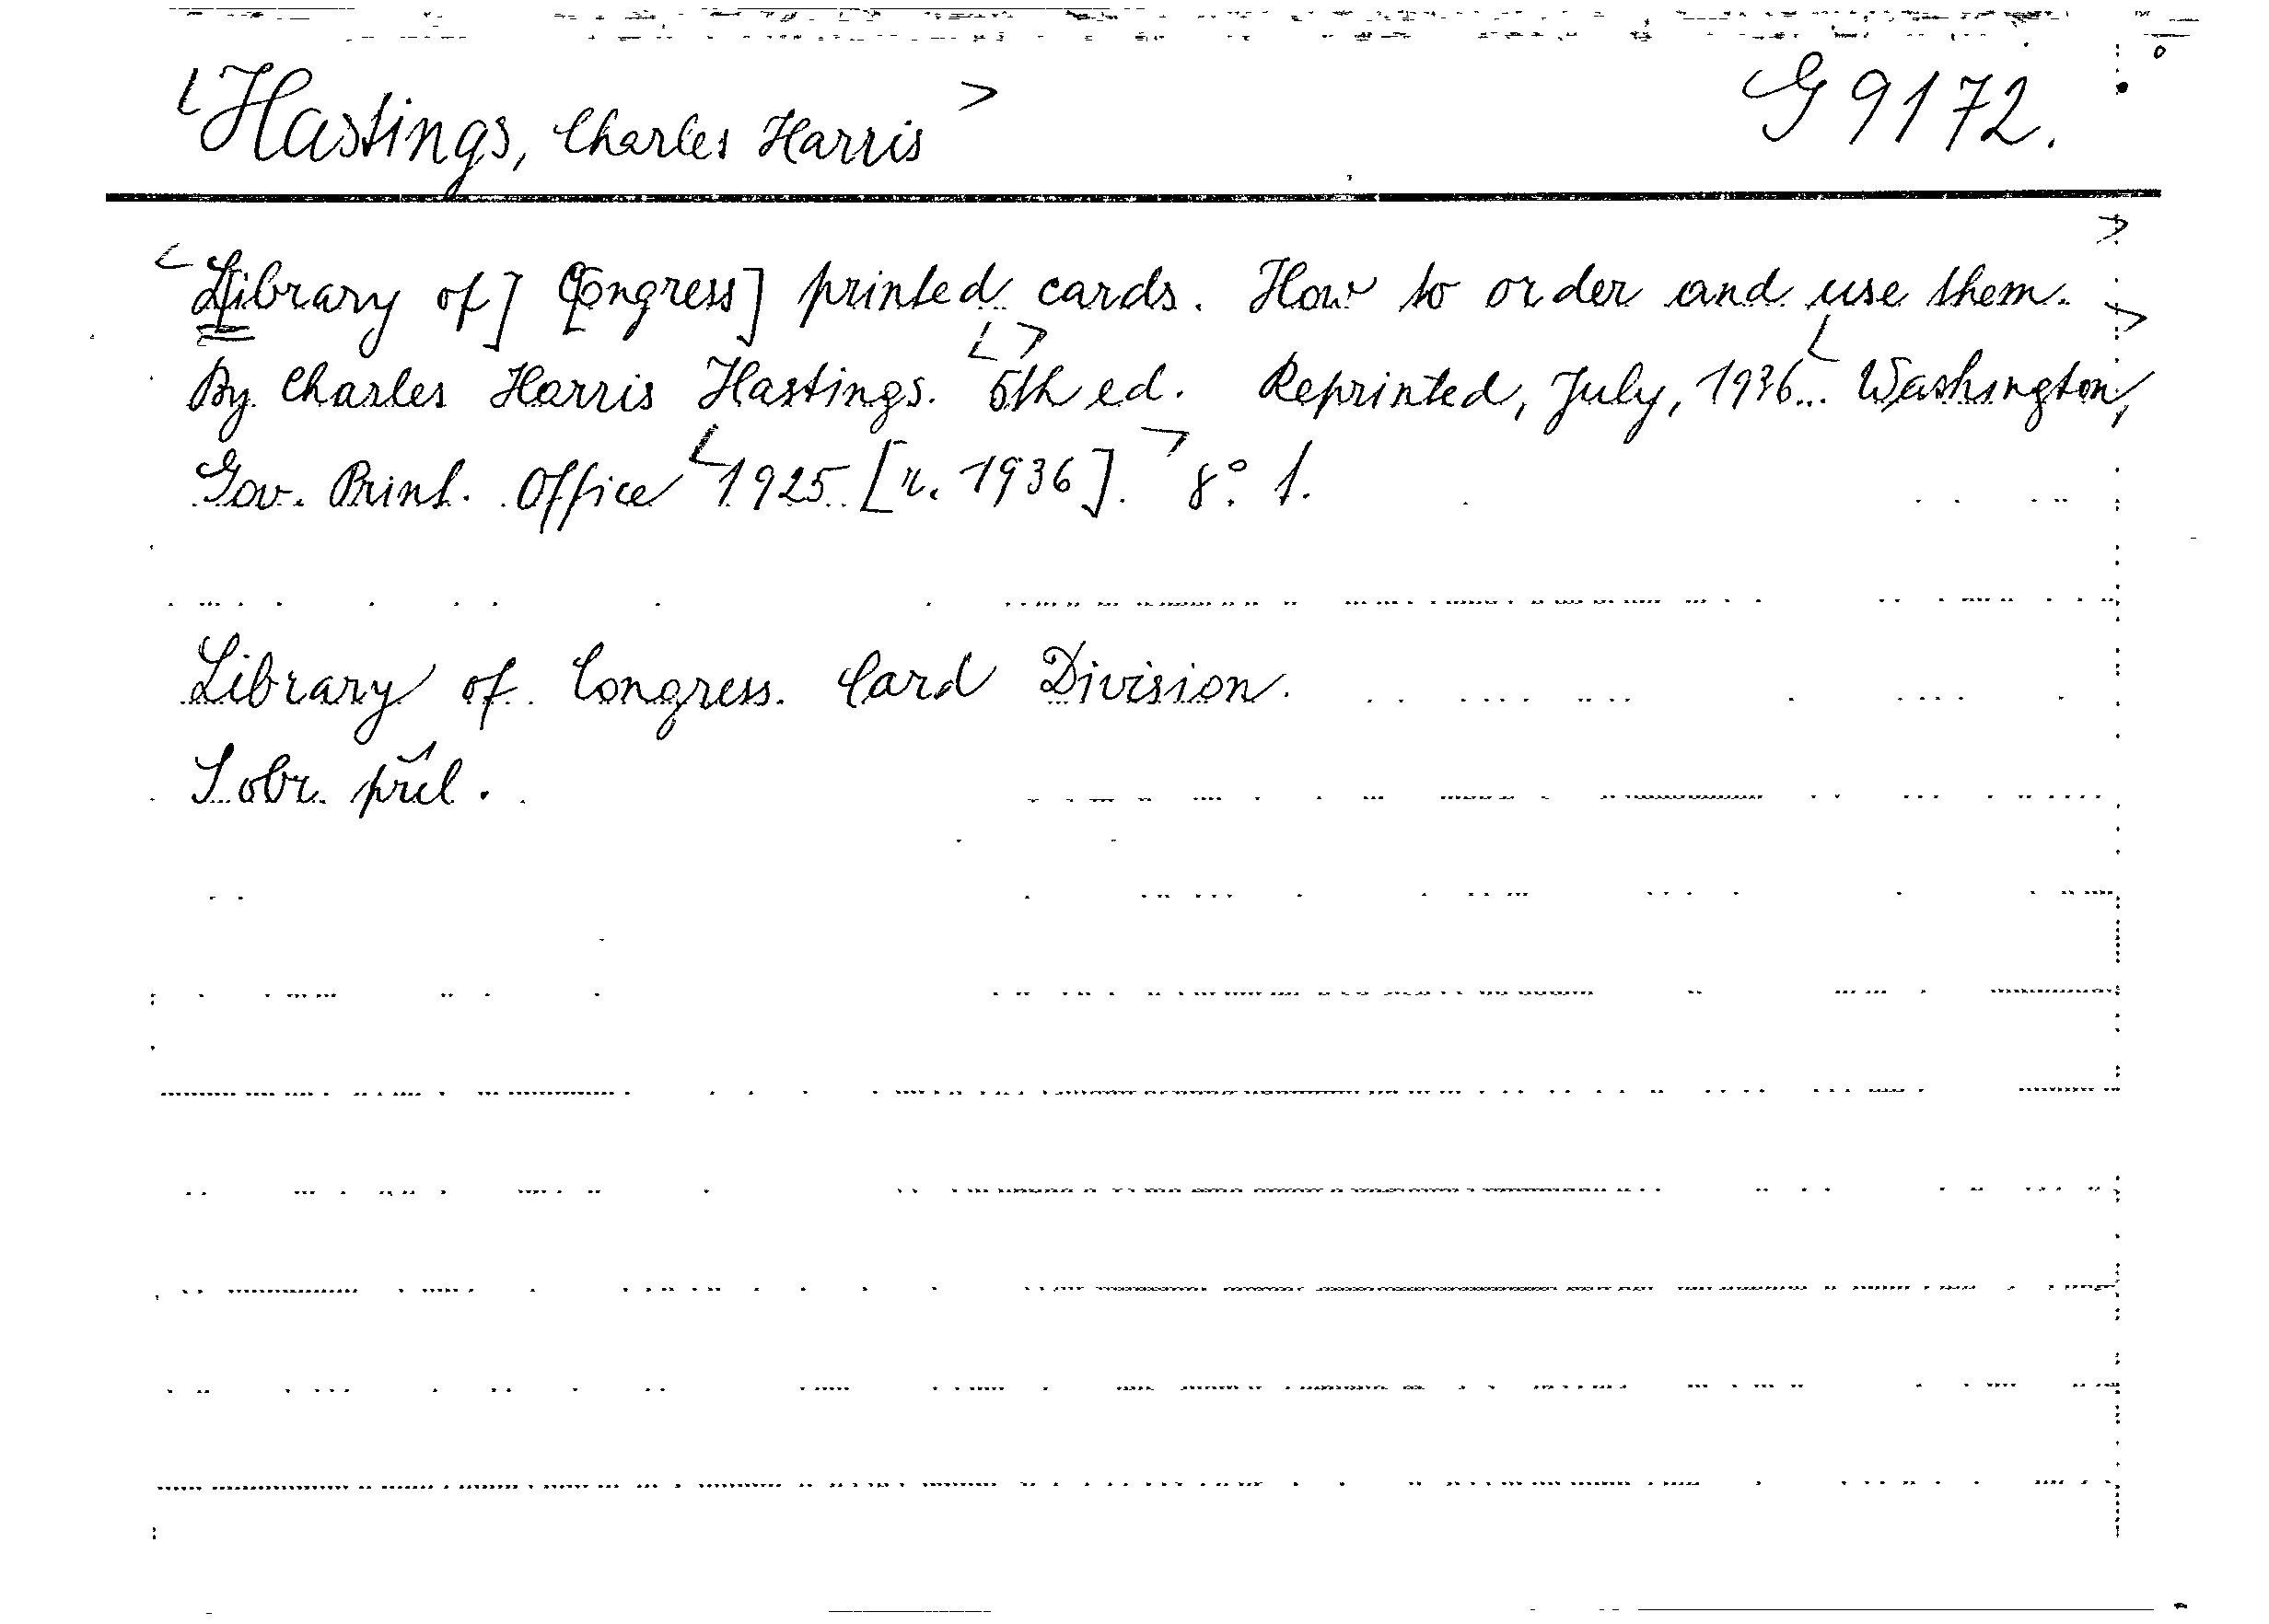 <Hastings, Charles Harris> G 9172.
<L[ibrary of] C[ongress] printed cards. How to order and use them.>
By Charles Harris Hastings. <6th> ed. Reprinted, July, 1936... <Washington,>
Gov. Print. Office <1925 [r. 1936].> 8° 1.
Library of Congress. Card Division.
S obr. příl.